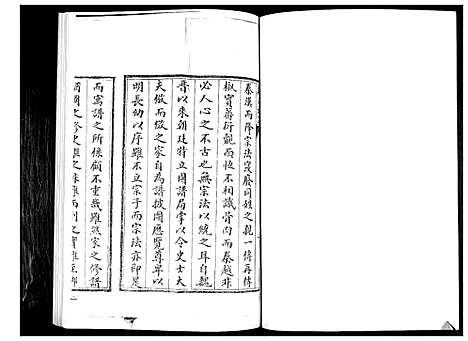 秦漢而降宗法寖廢同姓之親一傳再傳
椒實蕃衍親而恆不相識骨肉而秦越非
必人心之不古也無宗法以統之耳自魏
晉以來朝廷特立圖譜局掌以令史士大
夫倣而做之家自為譜披圖應覽尊卑以
明長幼以序雖不立宗子而宗法亦即是
而寓譜之所係顧不重哉雖然家之修譜
猶國之修史
二